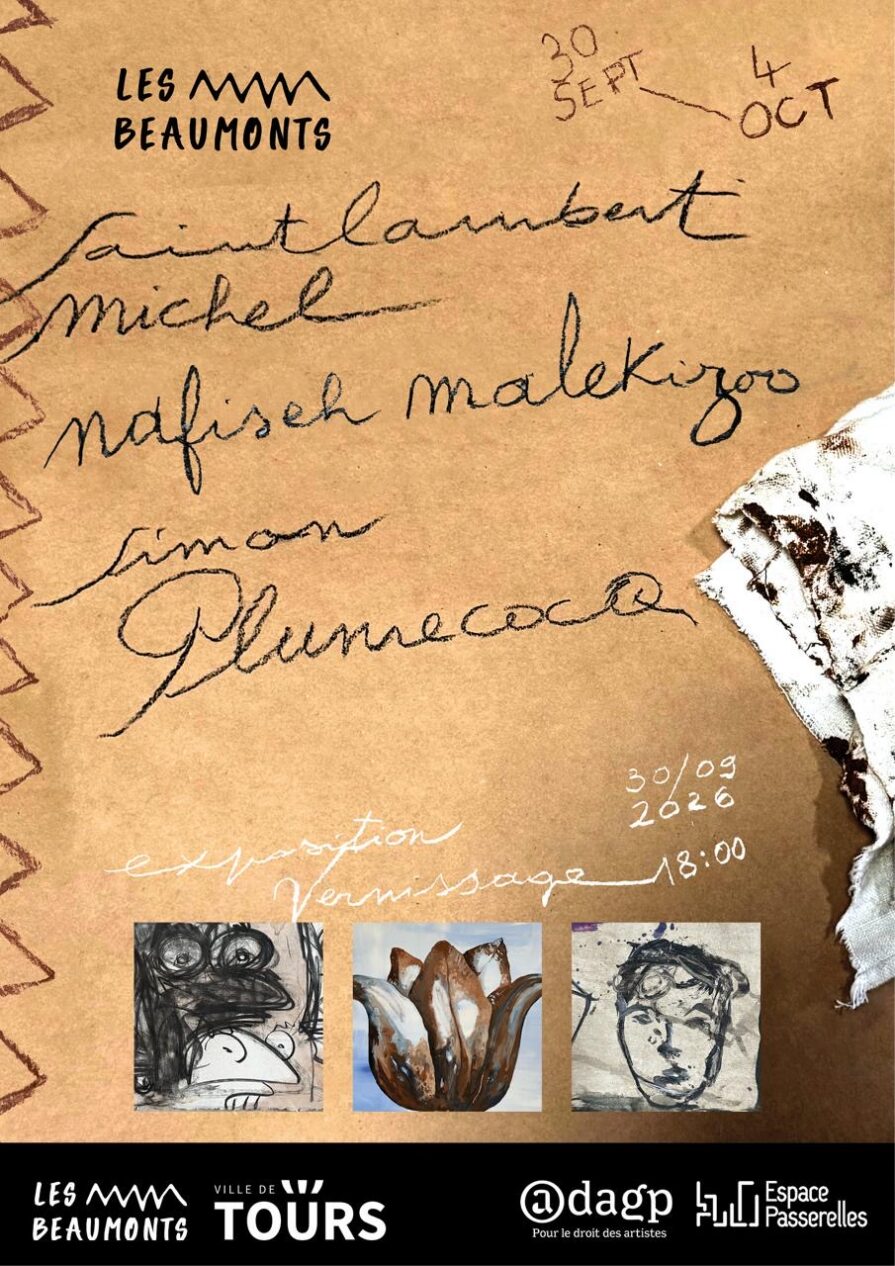 LES
BEAUMONTS
30
SEPT
4
OCT
saintlambert
michel
nafiseh malekizoo
simon
PlumecocQ
30/09
2026
exposition
Vernissage 18:00
LES
BEAUMONTS
VILLE DE
TOURS
@dagp
Pour le droit des artistes
Espace
Passerelles